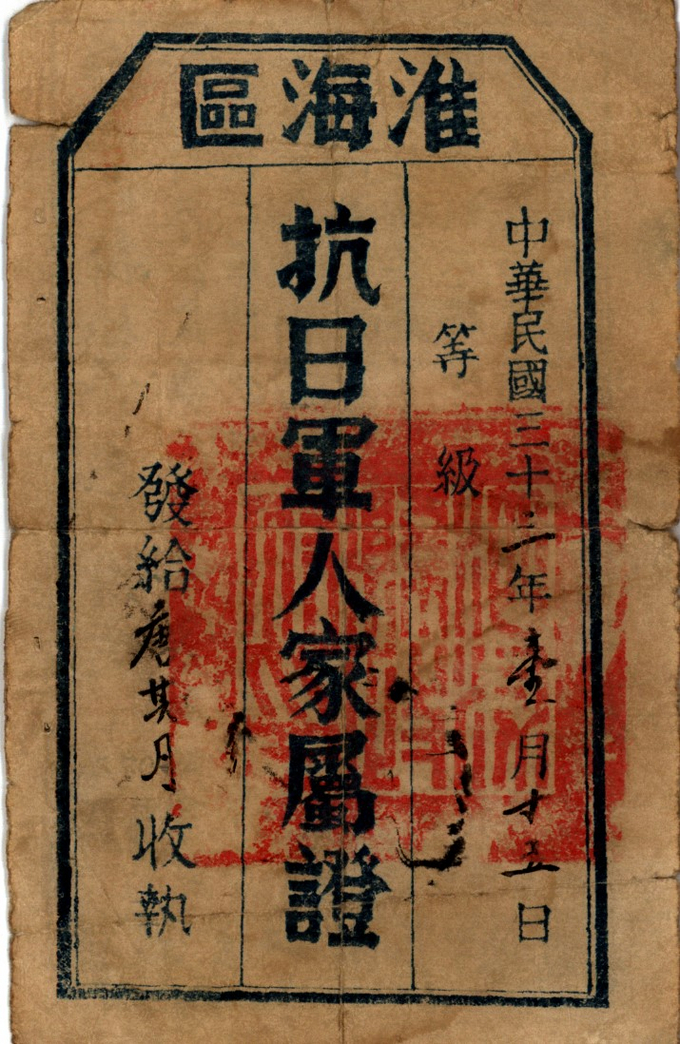 淮海區
中華民國三十三年壹月十五日
等級
抗日軍人家屬證
發給唐其月收執